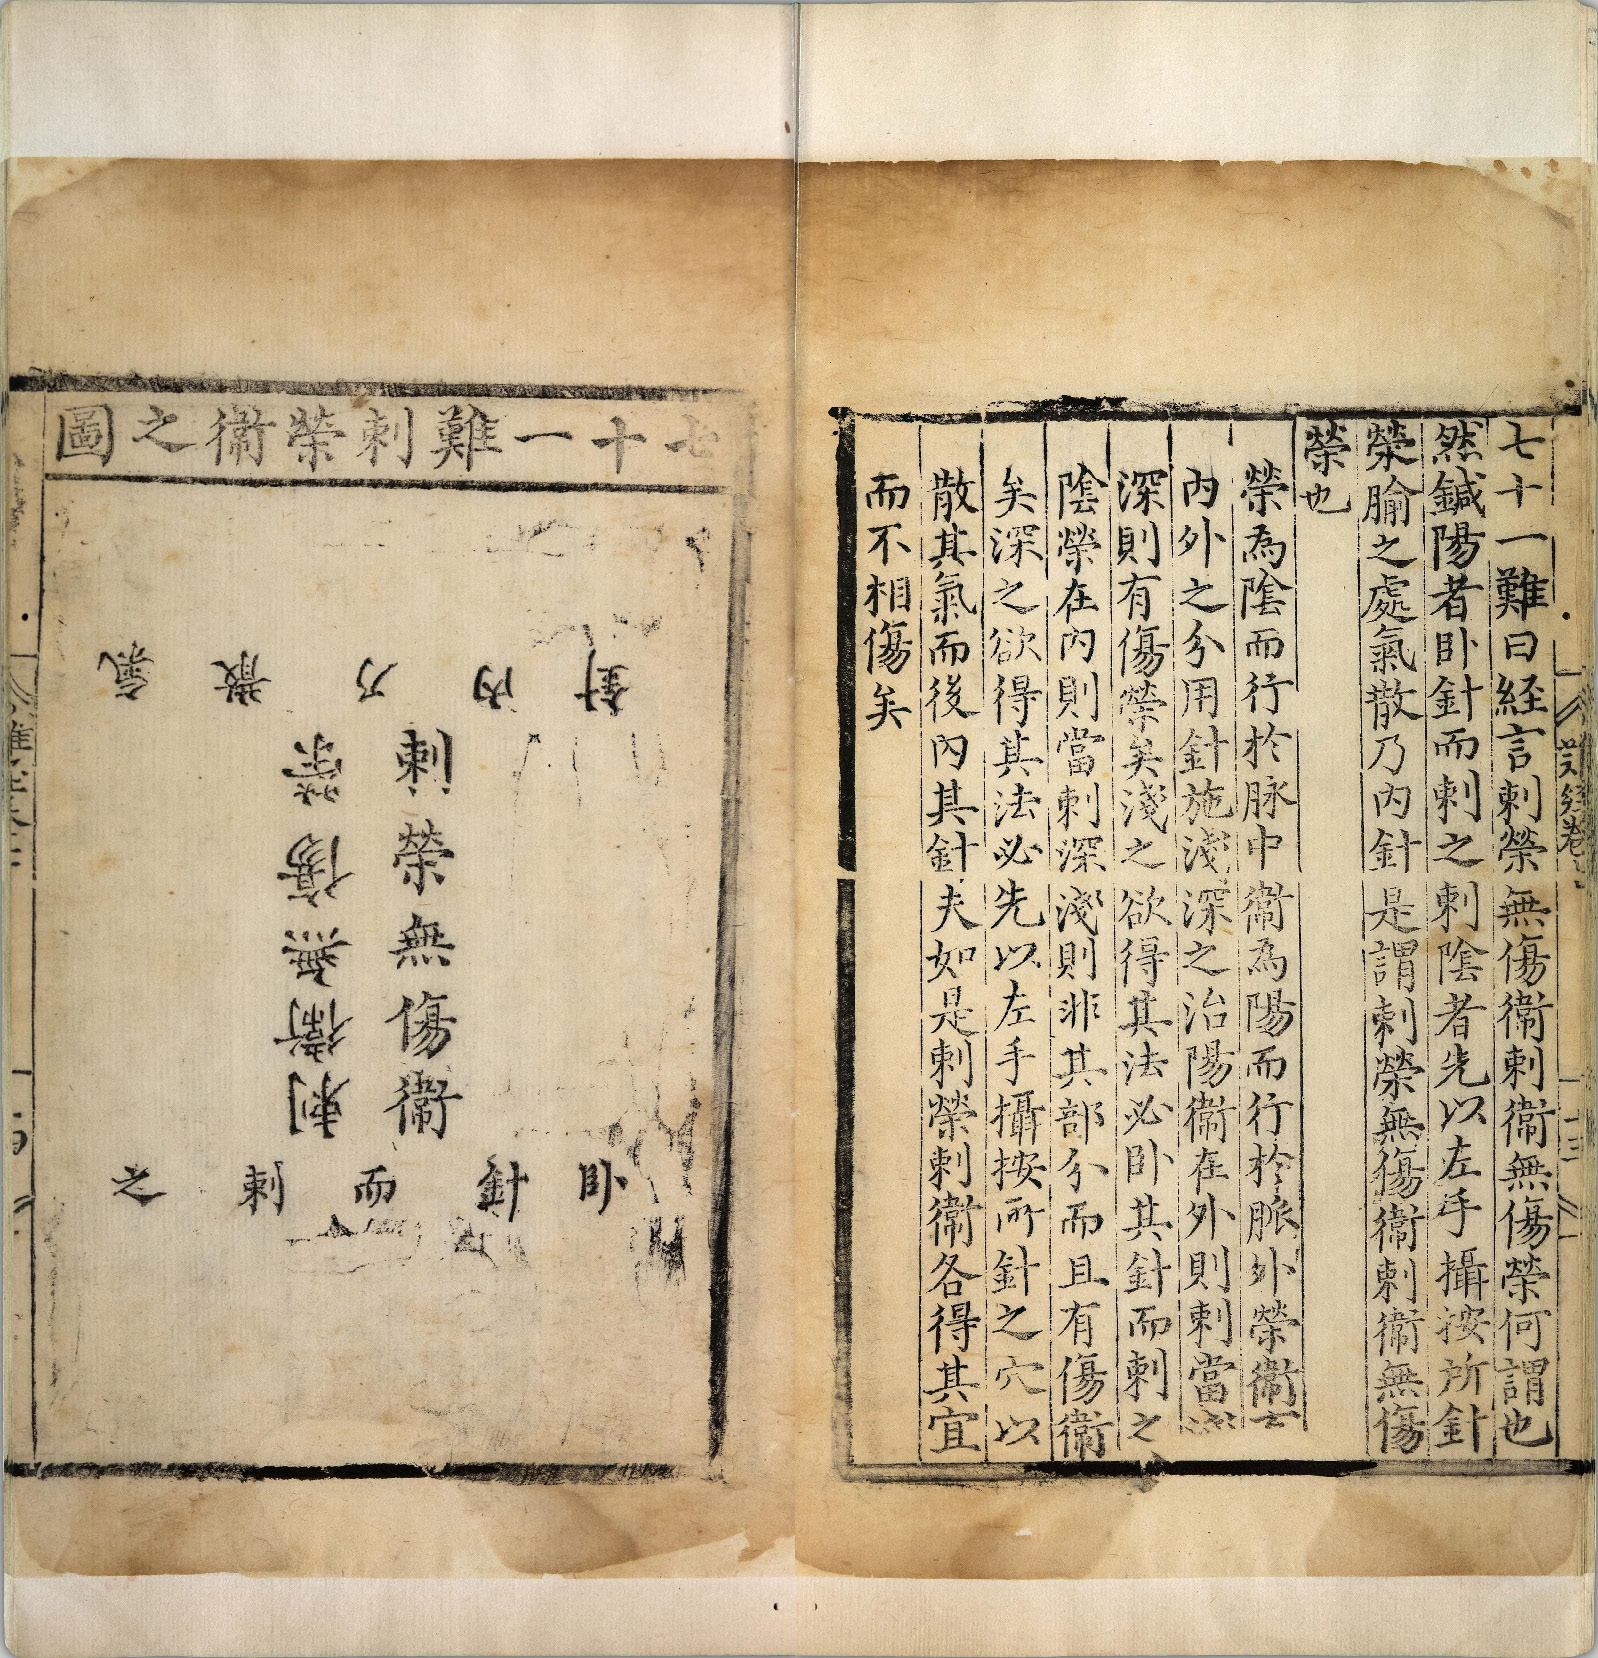 七十一難曰経言刺榮無傷衞刺衞無傷榮何謂也
然鍼陽者卧針而刺之刺陰者先以左手攝按所針
榮腧之處氣散乃內針是謂刺榮無傷衞刺衞無傷
榮也
榮為陰而行扵脉中衞為陽而行扵脈外榮衞有
內外之分用針施淺深之治陽衞在外則刺當淺
深則有傷榮矣淺之欲得其法必卧其針而刺之
陰榮在內則當刺深淺則非其部分而且有傷衞
矣深之欲得其法必先以左手攝按所針之穴以
散其氣而後內其針夫如是刺榮刺衞各得其宜
而不相傷矣
七十一難刺榮衞之圖
針內乃散氣
刺榮無傷衞
刺衞無傷榮
卧針而刺之
難経卷
十三